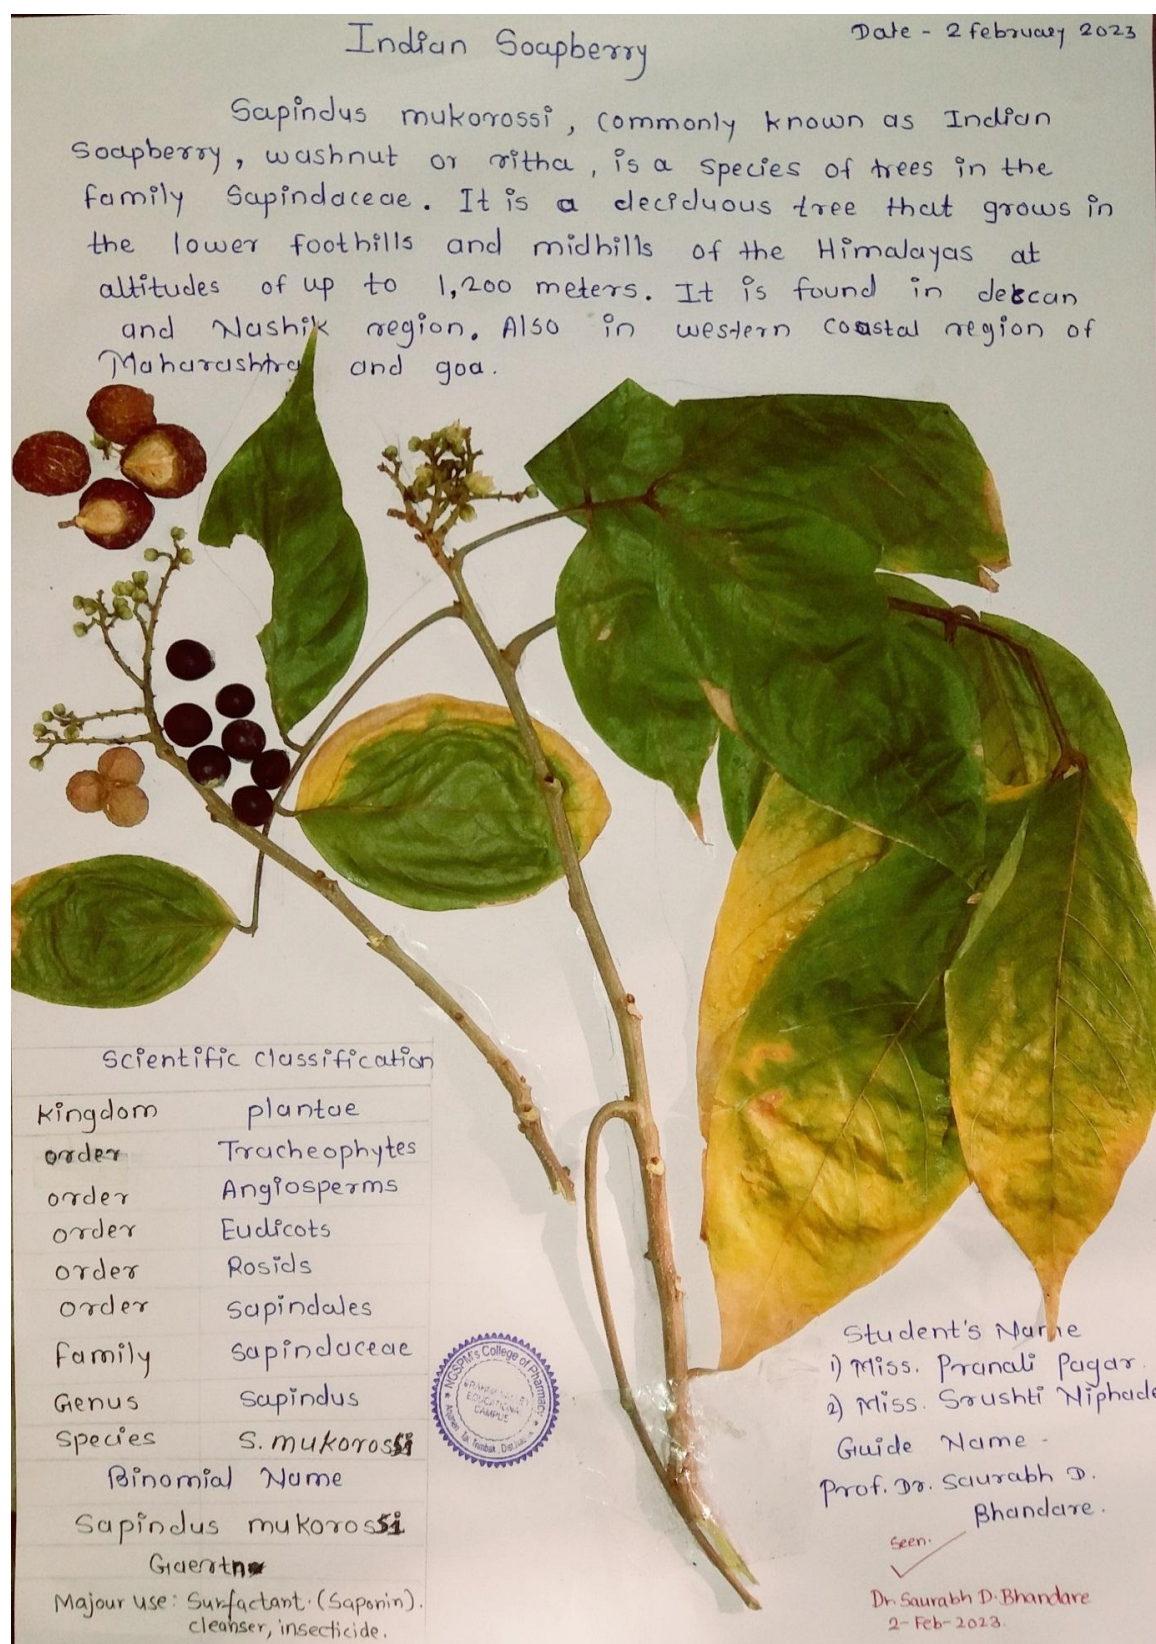 Indian Soapberry
Date - 2 february 2023
Sapindus mukorossi, commonly known as Indian
Soapberry, washnut or ritha, is a species of trees in the
family Sapindaceae. It is a deciduous tree that grows in
the lower foothills and midhills of the Himalayas at
altitudes of up to 1,200 meters. It is found in deccan
and Nashik region. Also in western coastal region of
Maharashtra and goa.
Scientific classification
kingdom plantae
order Tracheophytes
order Angiosperms
order Eudicots
order Rosids
order sapindales
family sapindaceae
Genus sapindus
species S. mukorossi
Binomial Name
Sapindus mukorossi
Gaertn
Majour use: Surfactant. (Saponin).
cleanser, insecticide.
NGSPM's College of Pharmacy
EDUCATIONAL
CAMPUS
Student's Name
1) Miss. Pranali Pagar
2) Miss. Srushti Niphade
Guide Name -
Prof. Dr. Saurabh D.
Bhandare.
Seen.
Dr. Saurabh D. Bhandare
2-Feb-2023.